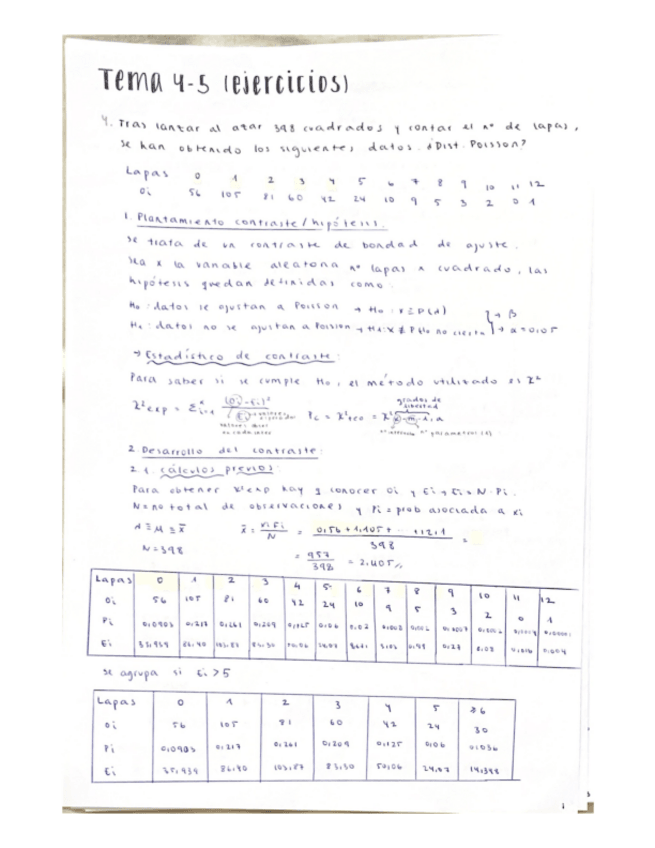 Tema 4-5 (ejercicios)
4. Tras lanzar al azar 398 cuadrados y contar el nº de lapas,
se han obtenido los siguientes datos. ¿Dist. Poisson?
Lapas 0 1 2 3 4 5 6 7 8 9 10 11 12
Oi 56 105 81 60 42 24 10 9 5 3 2 0 1
1. Plantamiento contraste/hipótesis.
Se trata de un contraste de bondad de ajuste.
Sea x la variable aleatoria nº lapas n cuadrado, las
hipótesis quedan definidas como:
H0: datos se ajustan a Poisson → H0: x ≡ P(λ)
H1: datos no se ajustan a Poisson → α = 0,05
→ Estadístico de contraste:
Para saber si se cumple H0, el método utilizado es χ²
grados de
libertad
2. Desarrollo del contraste:
2.1. Cálculos previos:
Para obtener χ²exp hay q conocer Oi y Ei → Ei = N·Pi.
N = no total de observaciones y Pi = prob asociada a xi
λ ≡ μ ≡ x̄ x̄ = xiFi / N = 0·56 + 1·105 + ··· + 12·1 / 398 =
N = 398 = 957 / 398 = 2,405
Lapas 0 1 2 3 4 5 6 7 8 9 10 11 12
Oi 56 105 81 60 42 24 10 9 5 3 2 0 1
Pi 0,0903 0,217 0,261 0,209 0,125 0,06 0,02
Ei
se agrupa si Ei > 5
Lapas 0 1 2 3 4 5 ≥6
Oi 56 105 81 60 42 24 30
Pi 0,0903 0,217 0,261 0,209 0,125 0,06 0,036
Ei 35,939 86,40 103,87 83,30 50,06 24,07 14,398